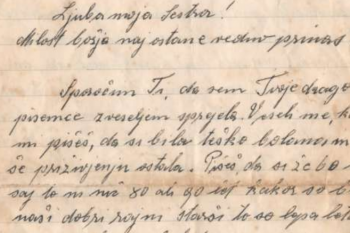 Ljuba moja Sestra!
Milost božja naj ostane vedno pri nas
Sporočim Ti, da sem Tvoje drago
pisemce z veseljem sprejela. Vseh me, k
mi pišeš, da si bila teško bolana, m
še pri življenju ostala. Pišeš da si že 80
saj to ni nič 80 ali 90 let kakor so b
naši dobri rajni starši to so lepa let